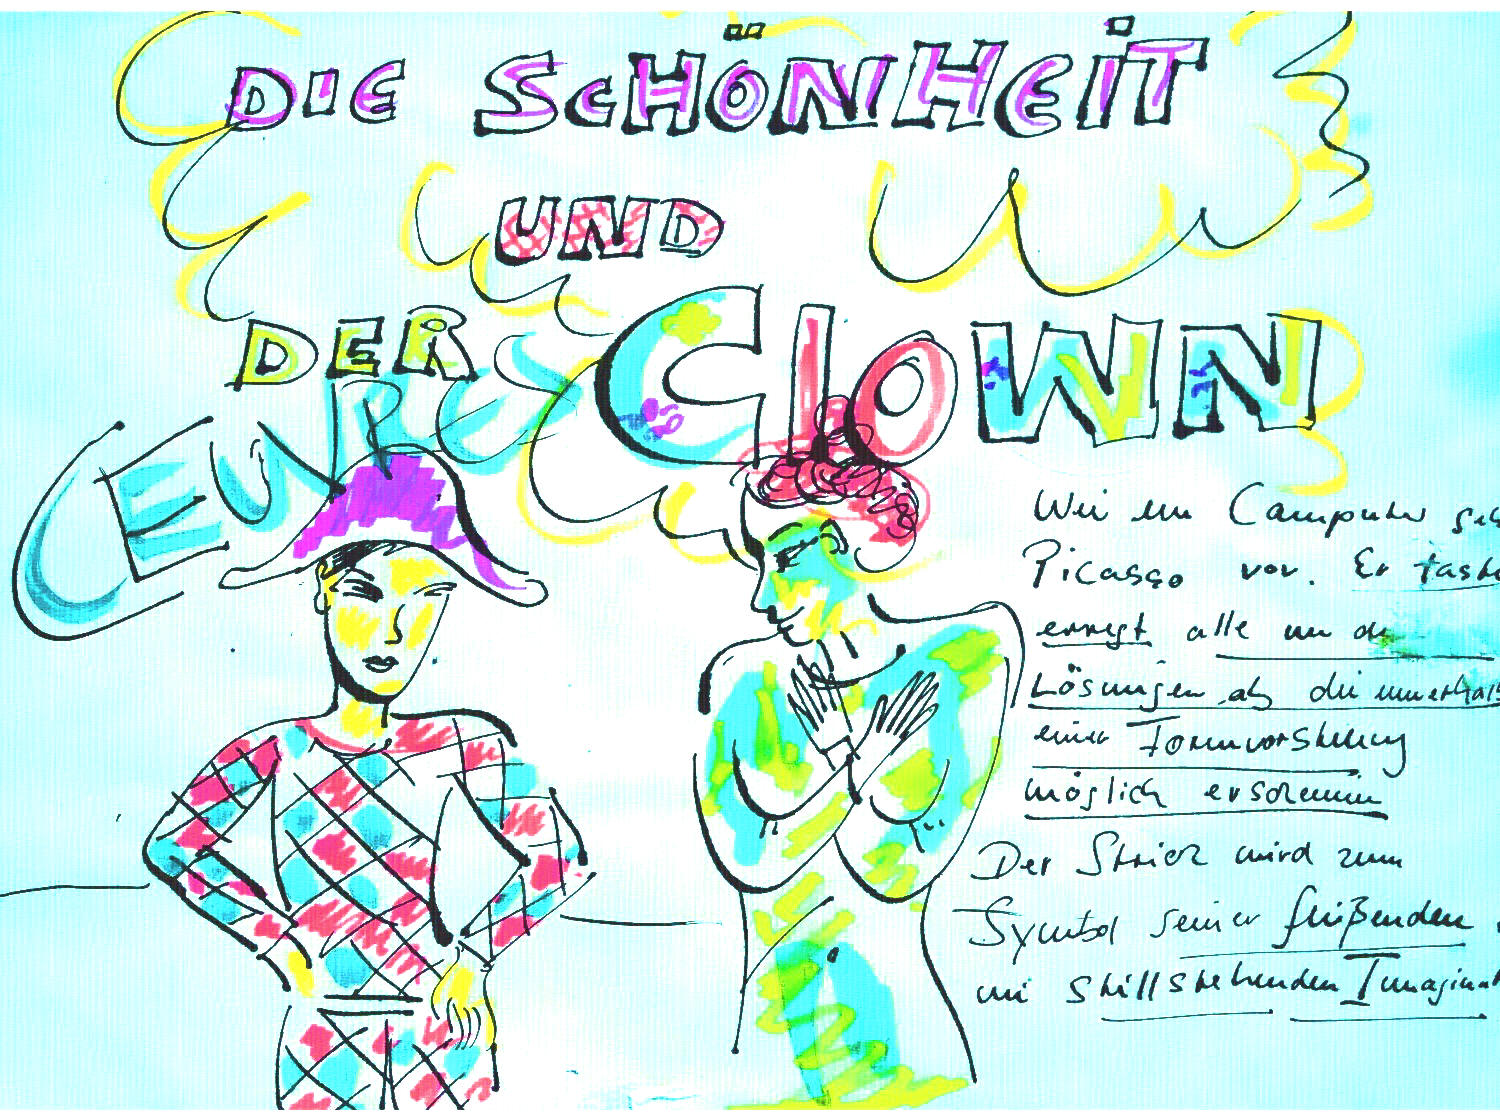 DIE SCHÖNHEIT
UND
DER CLOWN
CEURES
Wie ein Computer geh
Picasso vor. Er taste
erregt alle nu di
Lösungen ab die innerhalb
einer Formvorstellung
möglich erscheinen
Der Strich wird zum
Symbol seiner fließenden
nie stillstehenden Imaginat